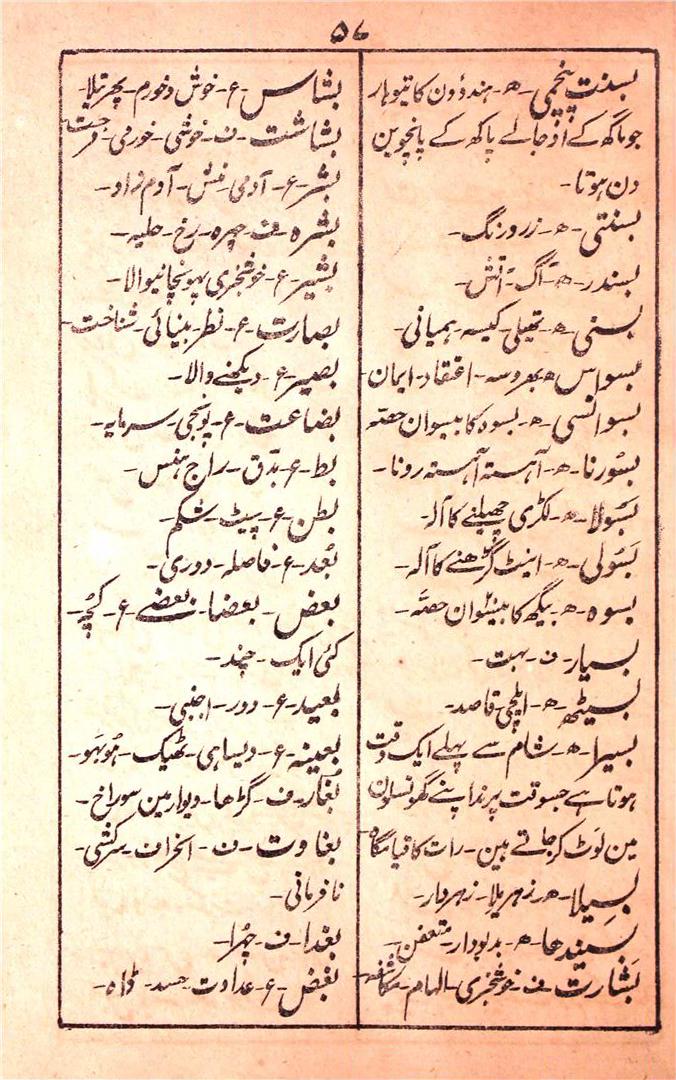 ۵۷
بسنت پنچمی - ھ - ہندوون کا تیوہار
جو ماگھ کے اوجالے پاکھ کے پانچوین
دن ہوتا -
بسنتی - ھ - زرد رنگ -
بسندر - ھ - آگ - آتش -
بسنی - ھ - تھیلی - کیسہ - ہمیانی -
بسواس - ھ - بھروسہ - اعتقاد - ایمان -
بسوانسی - ھ - بسوہ کا بیسوان حصہ
بسُورنا - ھ - آہستہ آہستہ رونا -
بسُولا - ھ - لکڑی چھیلنے کا آلہ -
بسُولی - ھ - اینٹ گڑھنے کا آلہ -
بسوہ - ھ - بیگھ کا بیسوان حصہ -
بسیار - ف - بہت -
بسیٹھ - ھ - ایلچی - قاصد -
بسیرا - ھ - شام سے پہلے ایک وقت
ہوتا ہے جسوقت پرند اپنے گھونسلون
مین لَوٹ کر جاتے ہین - رات کا قیامگاہ
بسِیلا - ھ - زہریلا - زہردار -
بسیندھا - ھ - بدبودار - متعفن -
بَشارت - ف - خوشخبری - الہام - مکاشفہ -
بشاس - ع - خوش و خورم - پھرتیلا -
بشاشت - ف - خوشی - خورمی - فرحت -
بشر - ع - آدمی - منش - آدم زاد -
بشرہ - ف - چہرہ - رخ - حلیہ -
بشیر - ع - خوشخبری پہونچانیوالا -
بصارت - ع - نظر - بینائی - شناخت -
بصیر - ع - دیکھنے والا -
بضاعت - ع - پونجی - سرمایہ -
بط - ع - بدّق - راج ہنس -
بطن - ع - پیٹ - شکم -
بُعد - ع - فاصلہ - دوری -
بعض - بعضا - بعضے - ع - کچُھ -
کئی ایک - چند -
بعید - ع - دور - اجنبی -
بعینہ - ع - ویسا ہی - ٹھیک - ہُوبَہُو -
بُغار - ف - گڑھا - دیوار مین سوراخ -
بغاوت - ف - انحراف - سرکشی -
نافرمانی -
بغدا - ف - چُھرا -
بُغض - ع - عداوت - حسد - ڈاہ -